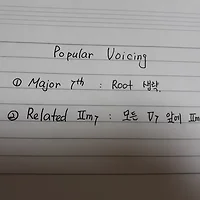 Popular Voicing
① Major 7th : Root 생략.
② Related Ⅱm7 : 모든 Ⅴ7 앞에 Ⅱm